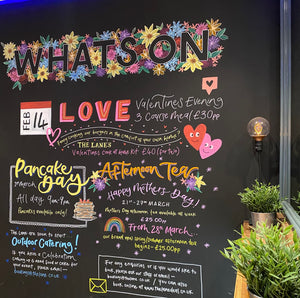 WHAT'S ON
FEB
14
LOVE
Valentines Evening
3 Course meal £30pp
Fancy enjoying our burgers in the comfort of your own home?
THE LANES
Valentines care at home kit £40 (for two)
Pancake
Day
1 March
All day. 9am-9pm
Pancakes available only!
Afternoon Tea
Happy Mothers Day!
21ST - 29TH MARCH
Mothers Day afternoon tea available all week
£25.00pp
From 28th March.
our brand new spring/summer afternoon tea
begins - £25.00pp
The Lanes are going to start
Outdoor Catering!
If you have a Celebration
coming up & need food & drink for
our event, please email-
For any enquiries or if you would like to
book, please call our store or email us